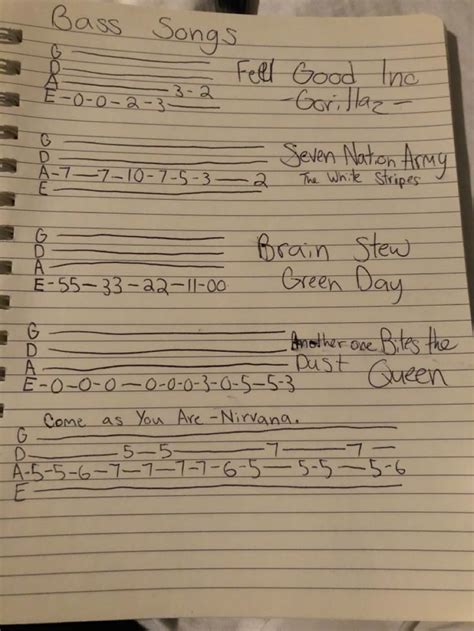 Bass Songs
G
D
A 3-2 Fell Good Inc
E-0-0-2-3 -Gorillaz-
G
D Seven Nation Army
A-7-7-10-7-5-3-2 The White Stripes
E
G
D Brain Stew
A
E-55-33-22-11-00 Green Day
G
D Another one Bites the
A Dust Queen
E-0-0-0-0-0-0-3-0-5-5-3
Come as You Are -Nirvana.
G
D 5-5 7 7
A-5-5-6-7-7-7-7-6-5-5-5-5-6
E